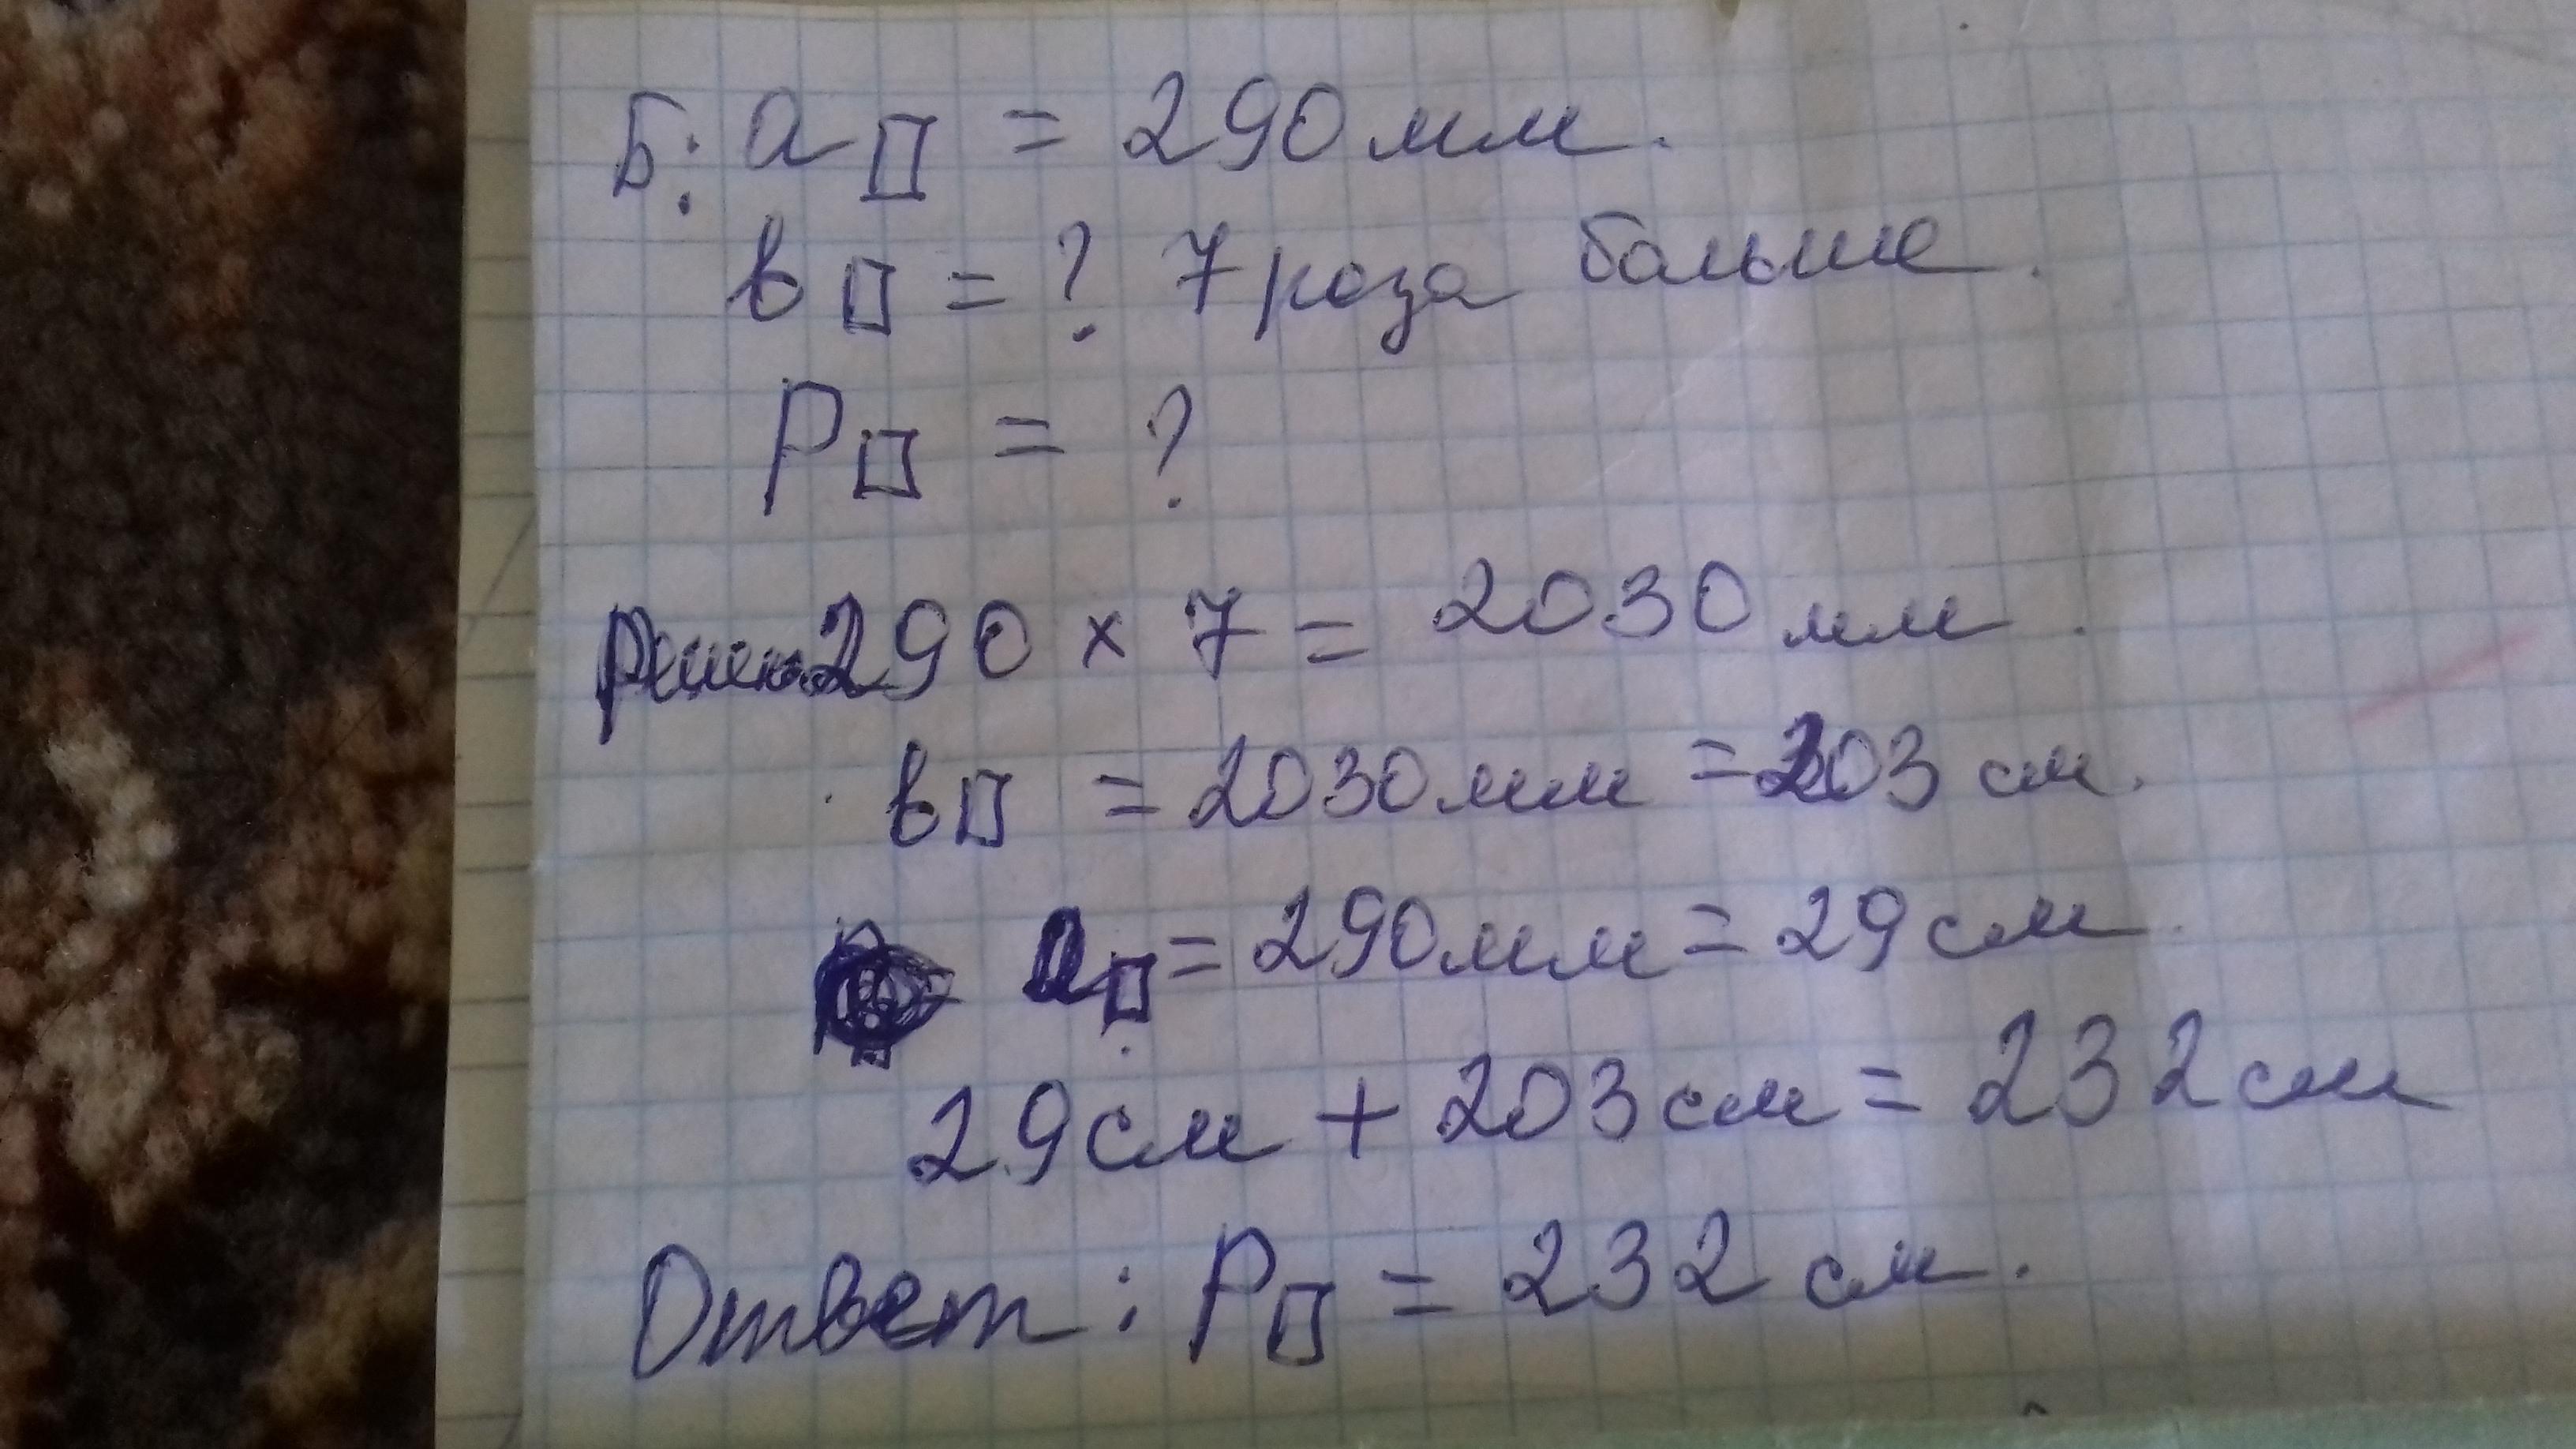 Б: a▯ = 290 мм.
в▯ = ? 7 раза больше.
P▯ = ?
Решен. 290 × 7 = 2030 мм.
в▯ = 2030 мм = 203 см.
a▯ = 290 мм = 29 см.
29 см + 203 см = 232 см
Ответ: P▯ = 232 см.